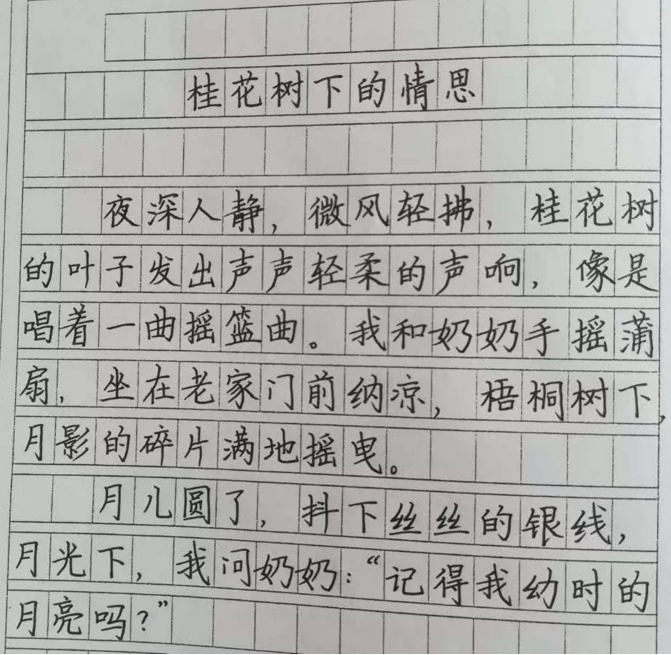 桂花树下的情思
夜深人静，微风轻拂，桂花树
的叶子发出声声轻柔的声响，像是
唱着一曲摇篮曲。我和奶奶手摇蒲
扇，坐在老家门前纳凉，梧桐树下，
月影的碎片满地摇曳。
月儿圆了，抖下丝丝的银线，
月光下，我问奶奶：“记得我幼时的
月亮吗？”